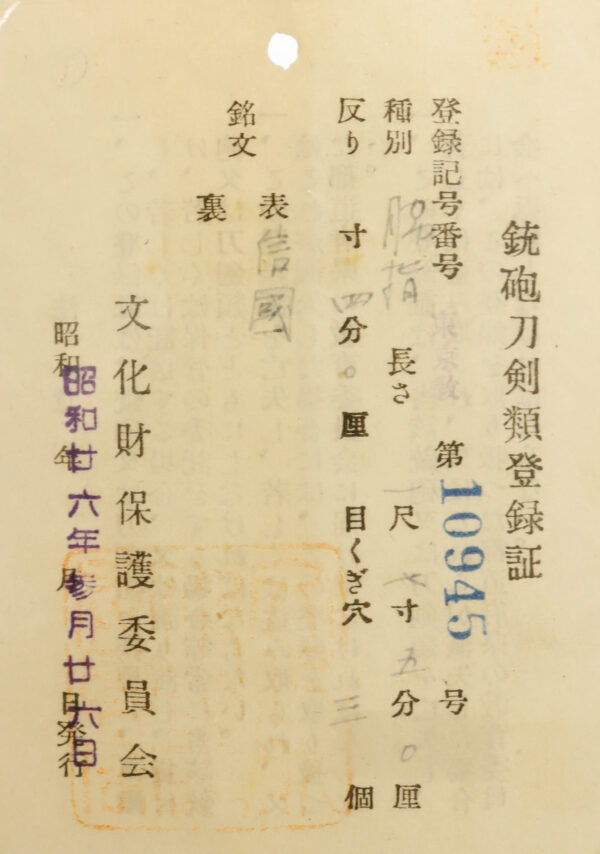 銃砲刀剣類登録証
登録記号番号 東京教 第10945号
種別 脇指 長さ 一尺七寸五分〇厘
反り 寸四分〇厘 目くぎ穴 三個
銘文
表 信國
裏
文化財保護委員会
昭和 年 月 日発行
昭和廿六年参月廿六日